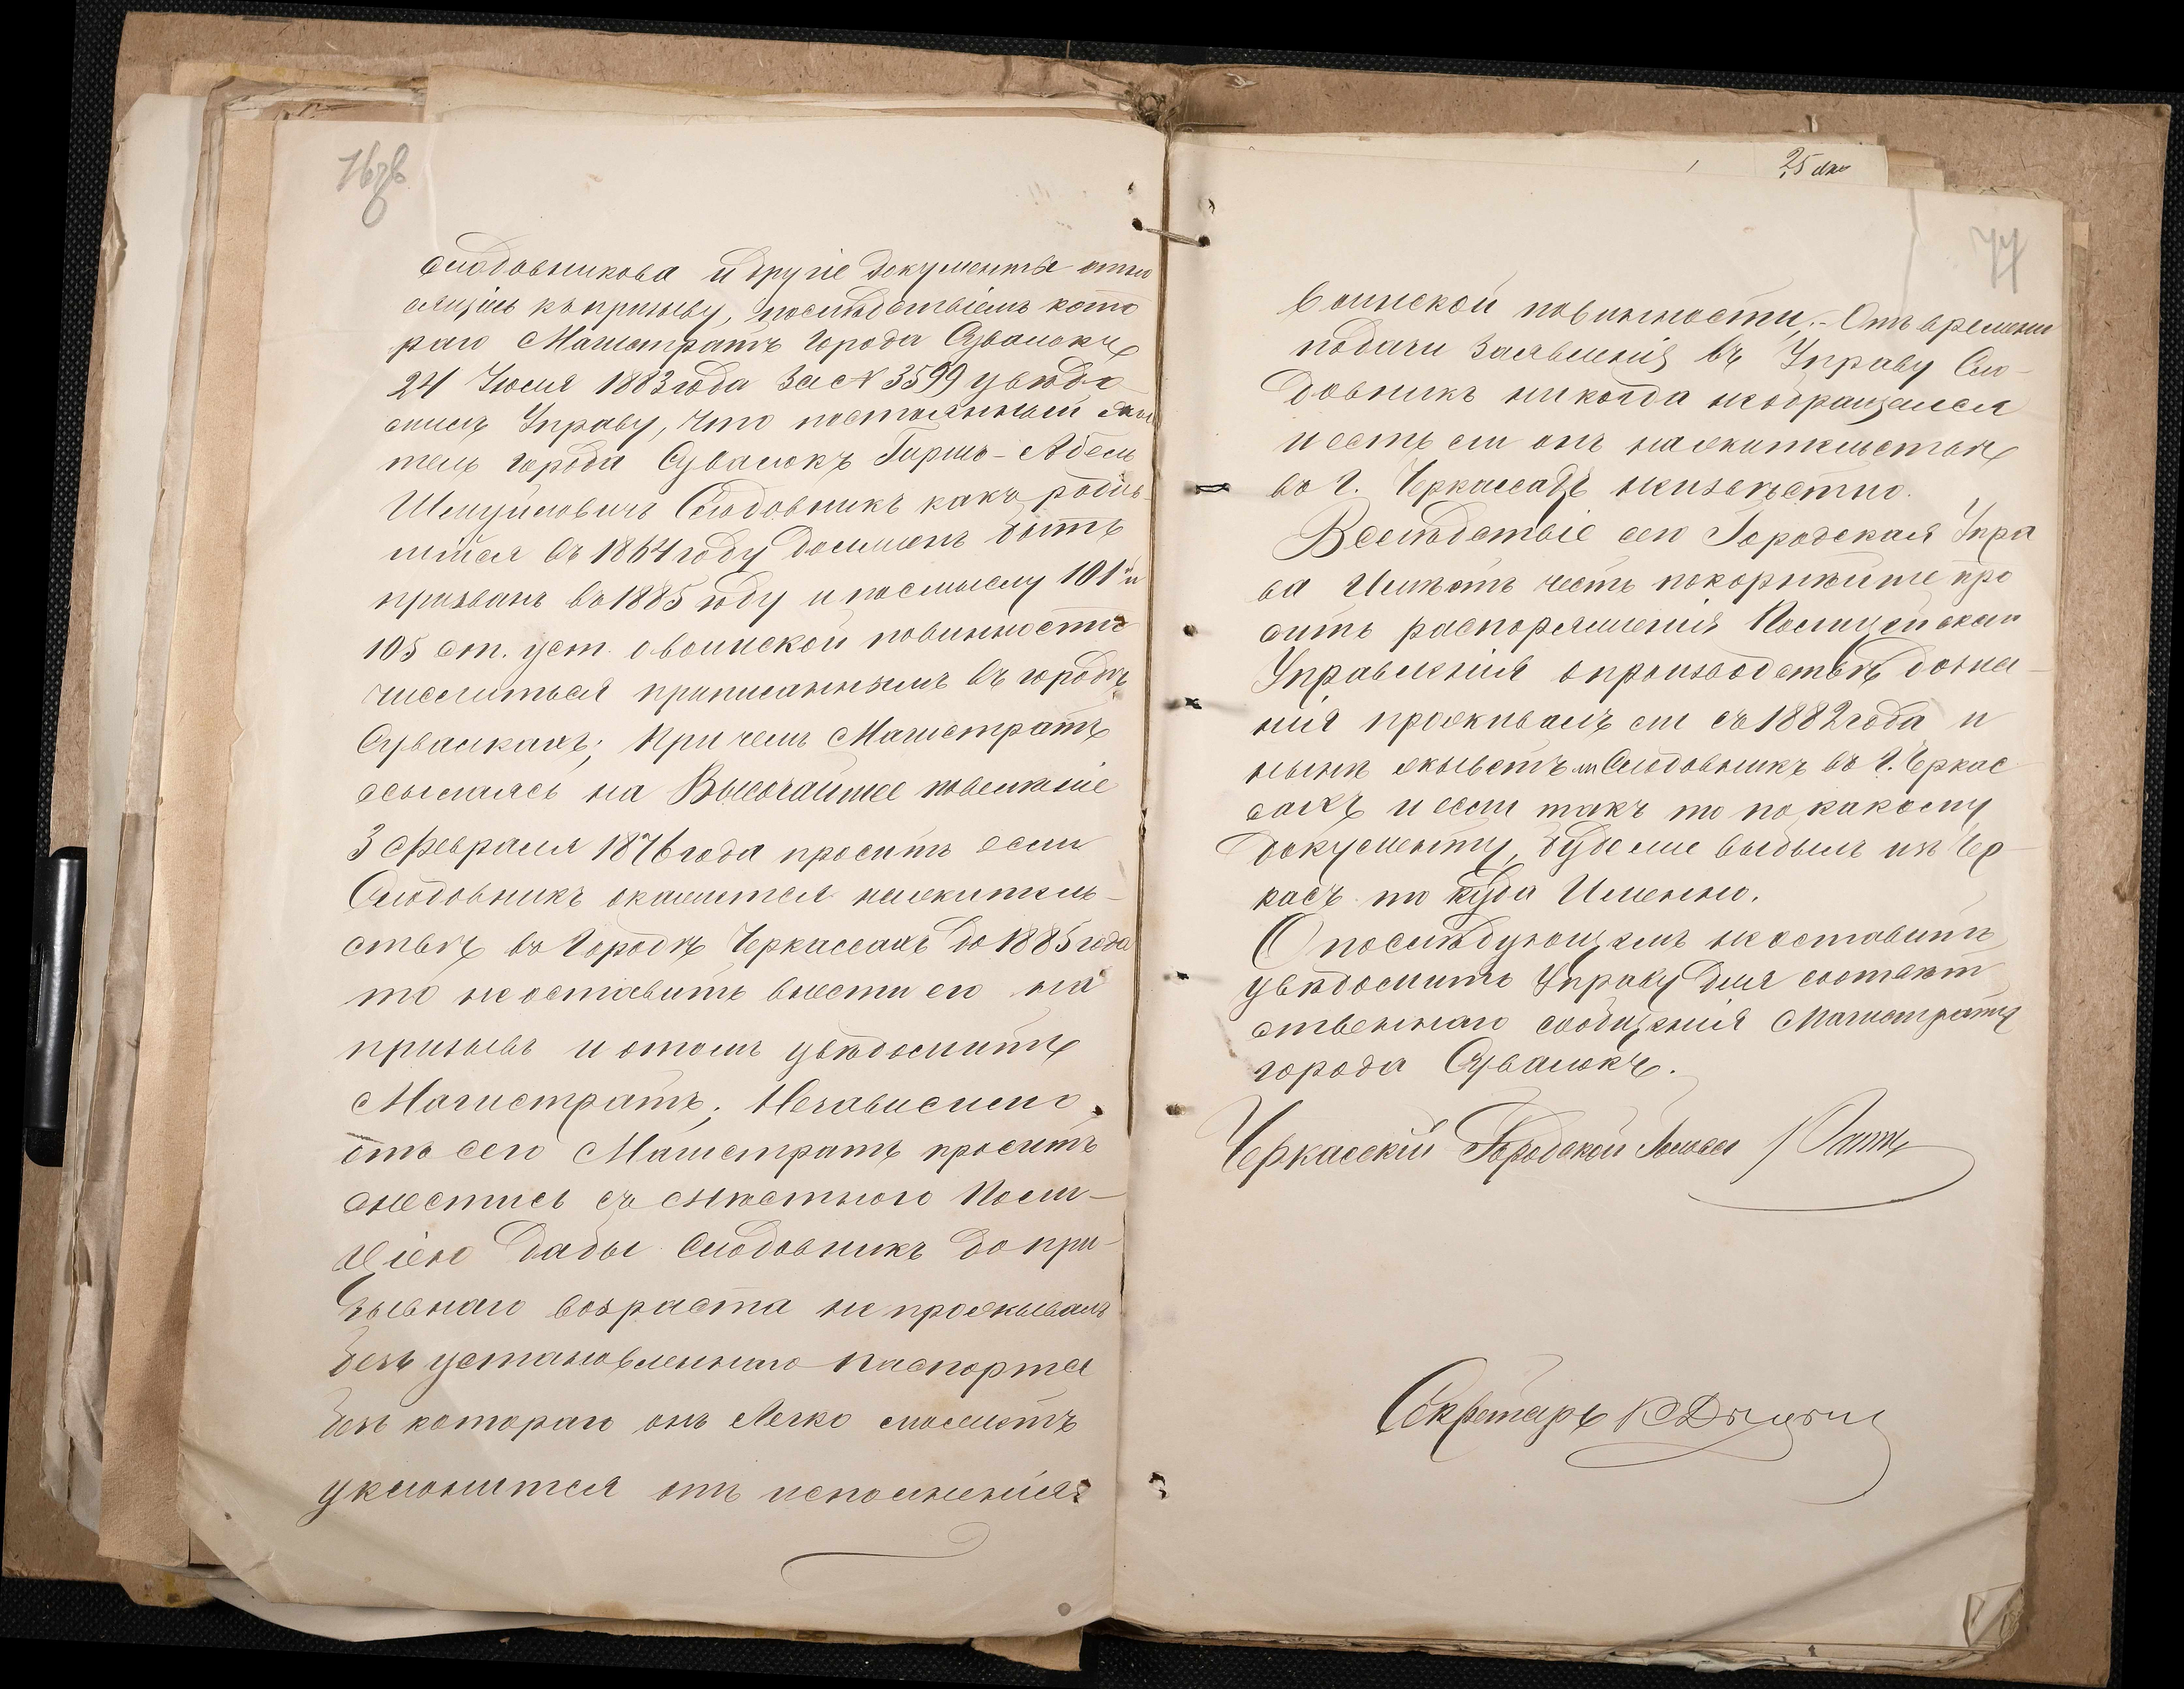 76 об
Слюдовникова и другіе документы отно
сящіясь къ призыву, послѣдствіемъ кото
раго Магистратъ города Сувалокъ
24 Іюля 1883 года за № 3599 увѣдо
милъ Управу, что постоянный жи
тель города Сувалокъ Гиршъ-Абель
Шмуйловичъ Слюдовникъ какъ родив-
шійся въ 1864 году долженъ быть
призванъ въ 1885 году и по смыслу 101 и
105 ст. уст. о воинской повинности
числиться приписаннымъ въ городѣ
Сувалкахъ; При чемъ Магистратъ
ссылаясь на Высочайшее повеленіе
3 февраля 1876 года проситъ если
Слюдовникъ окажется на жительствѣ
ствѣ въ Городѣ Черкассахъ до 1885 года
то не оставить внести его на
призывъ и отомъ увѣдомить
Магистратъ. Независимо
отъ сего Магистратъ проситъ
снестись съ мѣстною Поли-
ціею дабы Слюдовникъ до при-
зывнаго возраста не проживалъ
безъ установленнаго паспорта
безъ котораго онъ легко сможетъ
уклонится отъ исполненія
25
77
воинской повинности.- Отъ времени
подачи заявленія въ Управу Слю-
довникъ никогда необращался
и есть ли онъ на жительствѣ
въ г. Черкассахъ неизвѣстно.
Вслѣдствіе сего Городская Упра
ва Имѣетъ честь покорнѣйше про
сить распоряженія Полицейскаго
Управленія о производствѣ дозна-
нія проживалъ ли съ 1882 года и
нынѣ живетъ ли Слюдовникъ въ г. Черкас
сахъ и если такъ то по какому
документу, буде же выбылъ изъ Чер-
касъ то куда Именно.
О послѣдующемъ не оставить
увѣдомить Управу для соотвѣт
ственнаго сообщенія Магистрату
города Сувалокъ.
Черкасскій Городской Голова
Секретарь